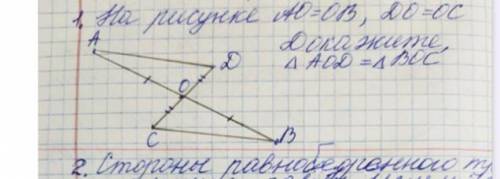 1. На рисунке AO=OB, DO=OC
Докажите,
△AOD=△BOC.
A
D
O
C
B
2. Стороны равнобедренного